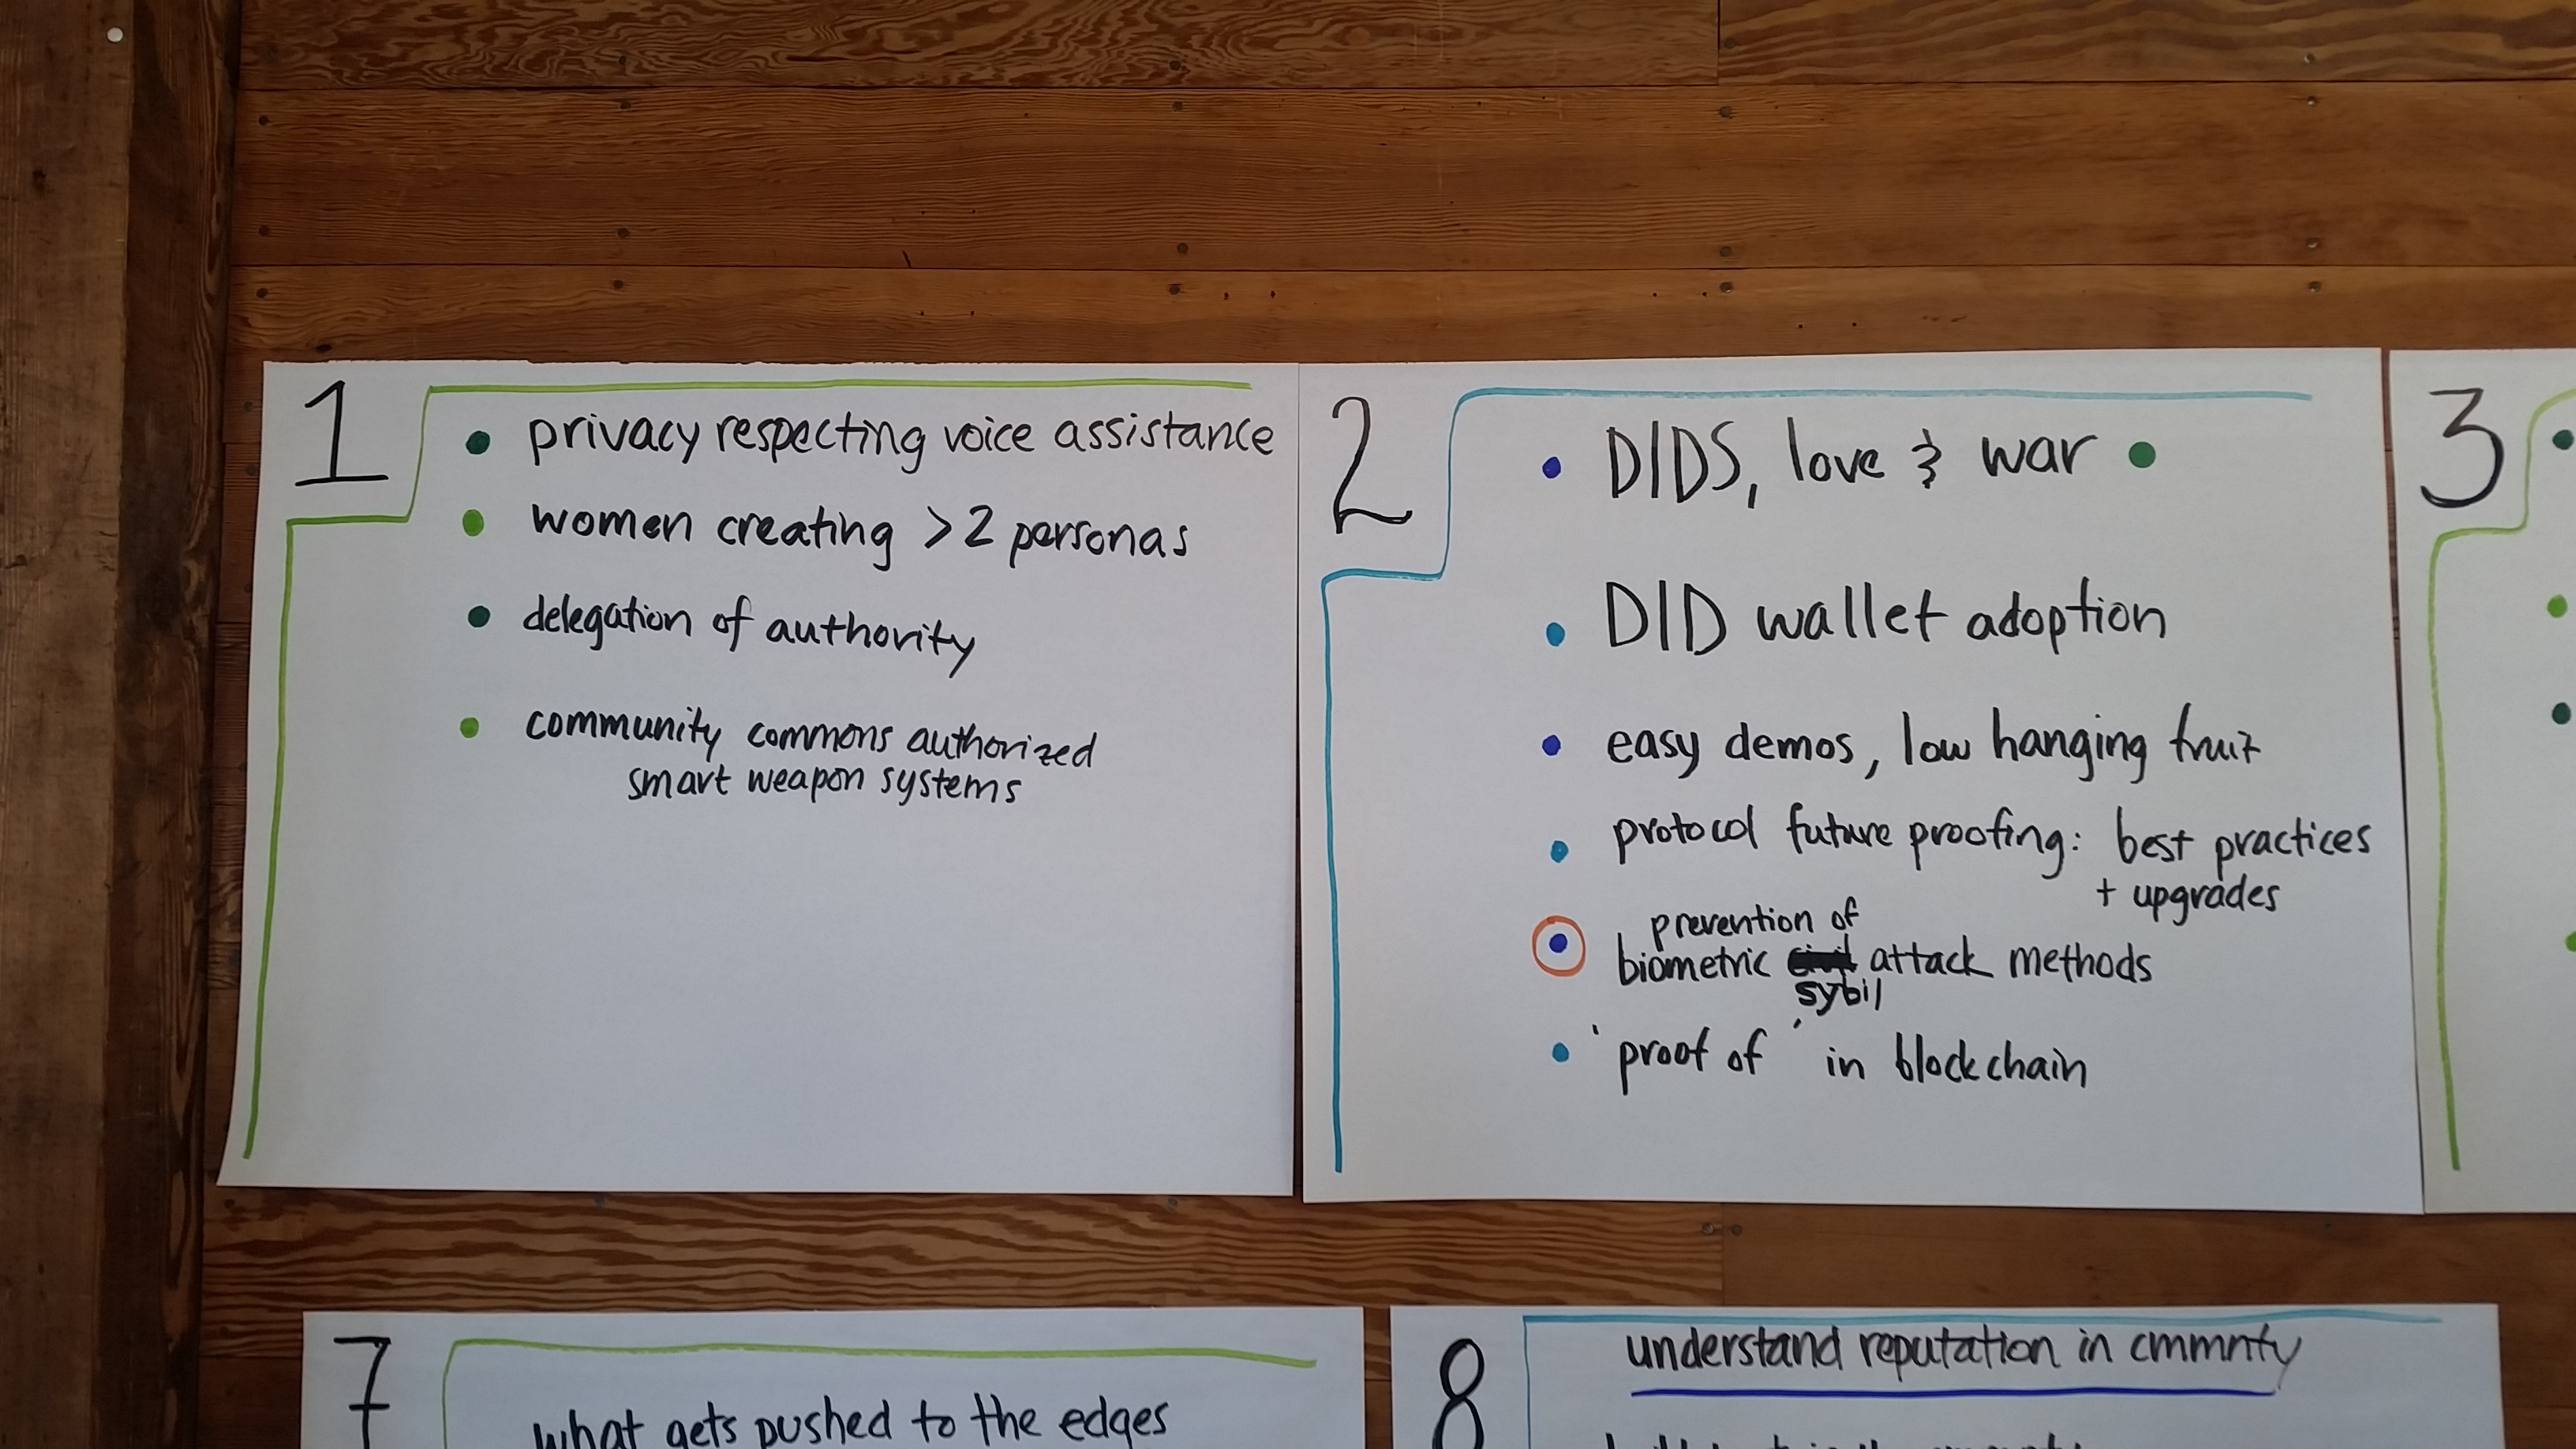 1
privacy respecting voice assistance
women creating >2 personas
delegation of authority
community commons authorized
smart weapon systems
2
DIDS, love & war
DID wallet adoption
easy demos, low hanging fruit
protocol future proofing: best practices
+ upgrades
prevention of
biometric attack methods
sybil
'proof of ' in blockchain
3
7
what gets pushed to the edges
8
understand reputation in cmmnty